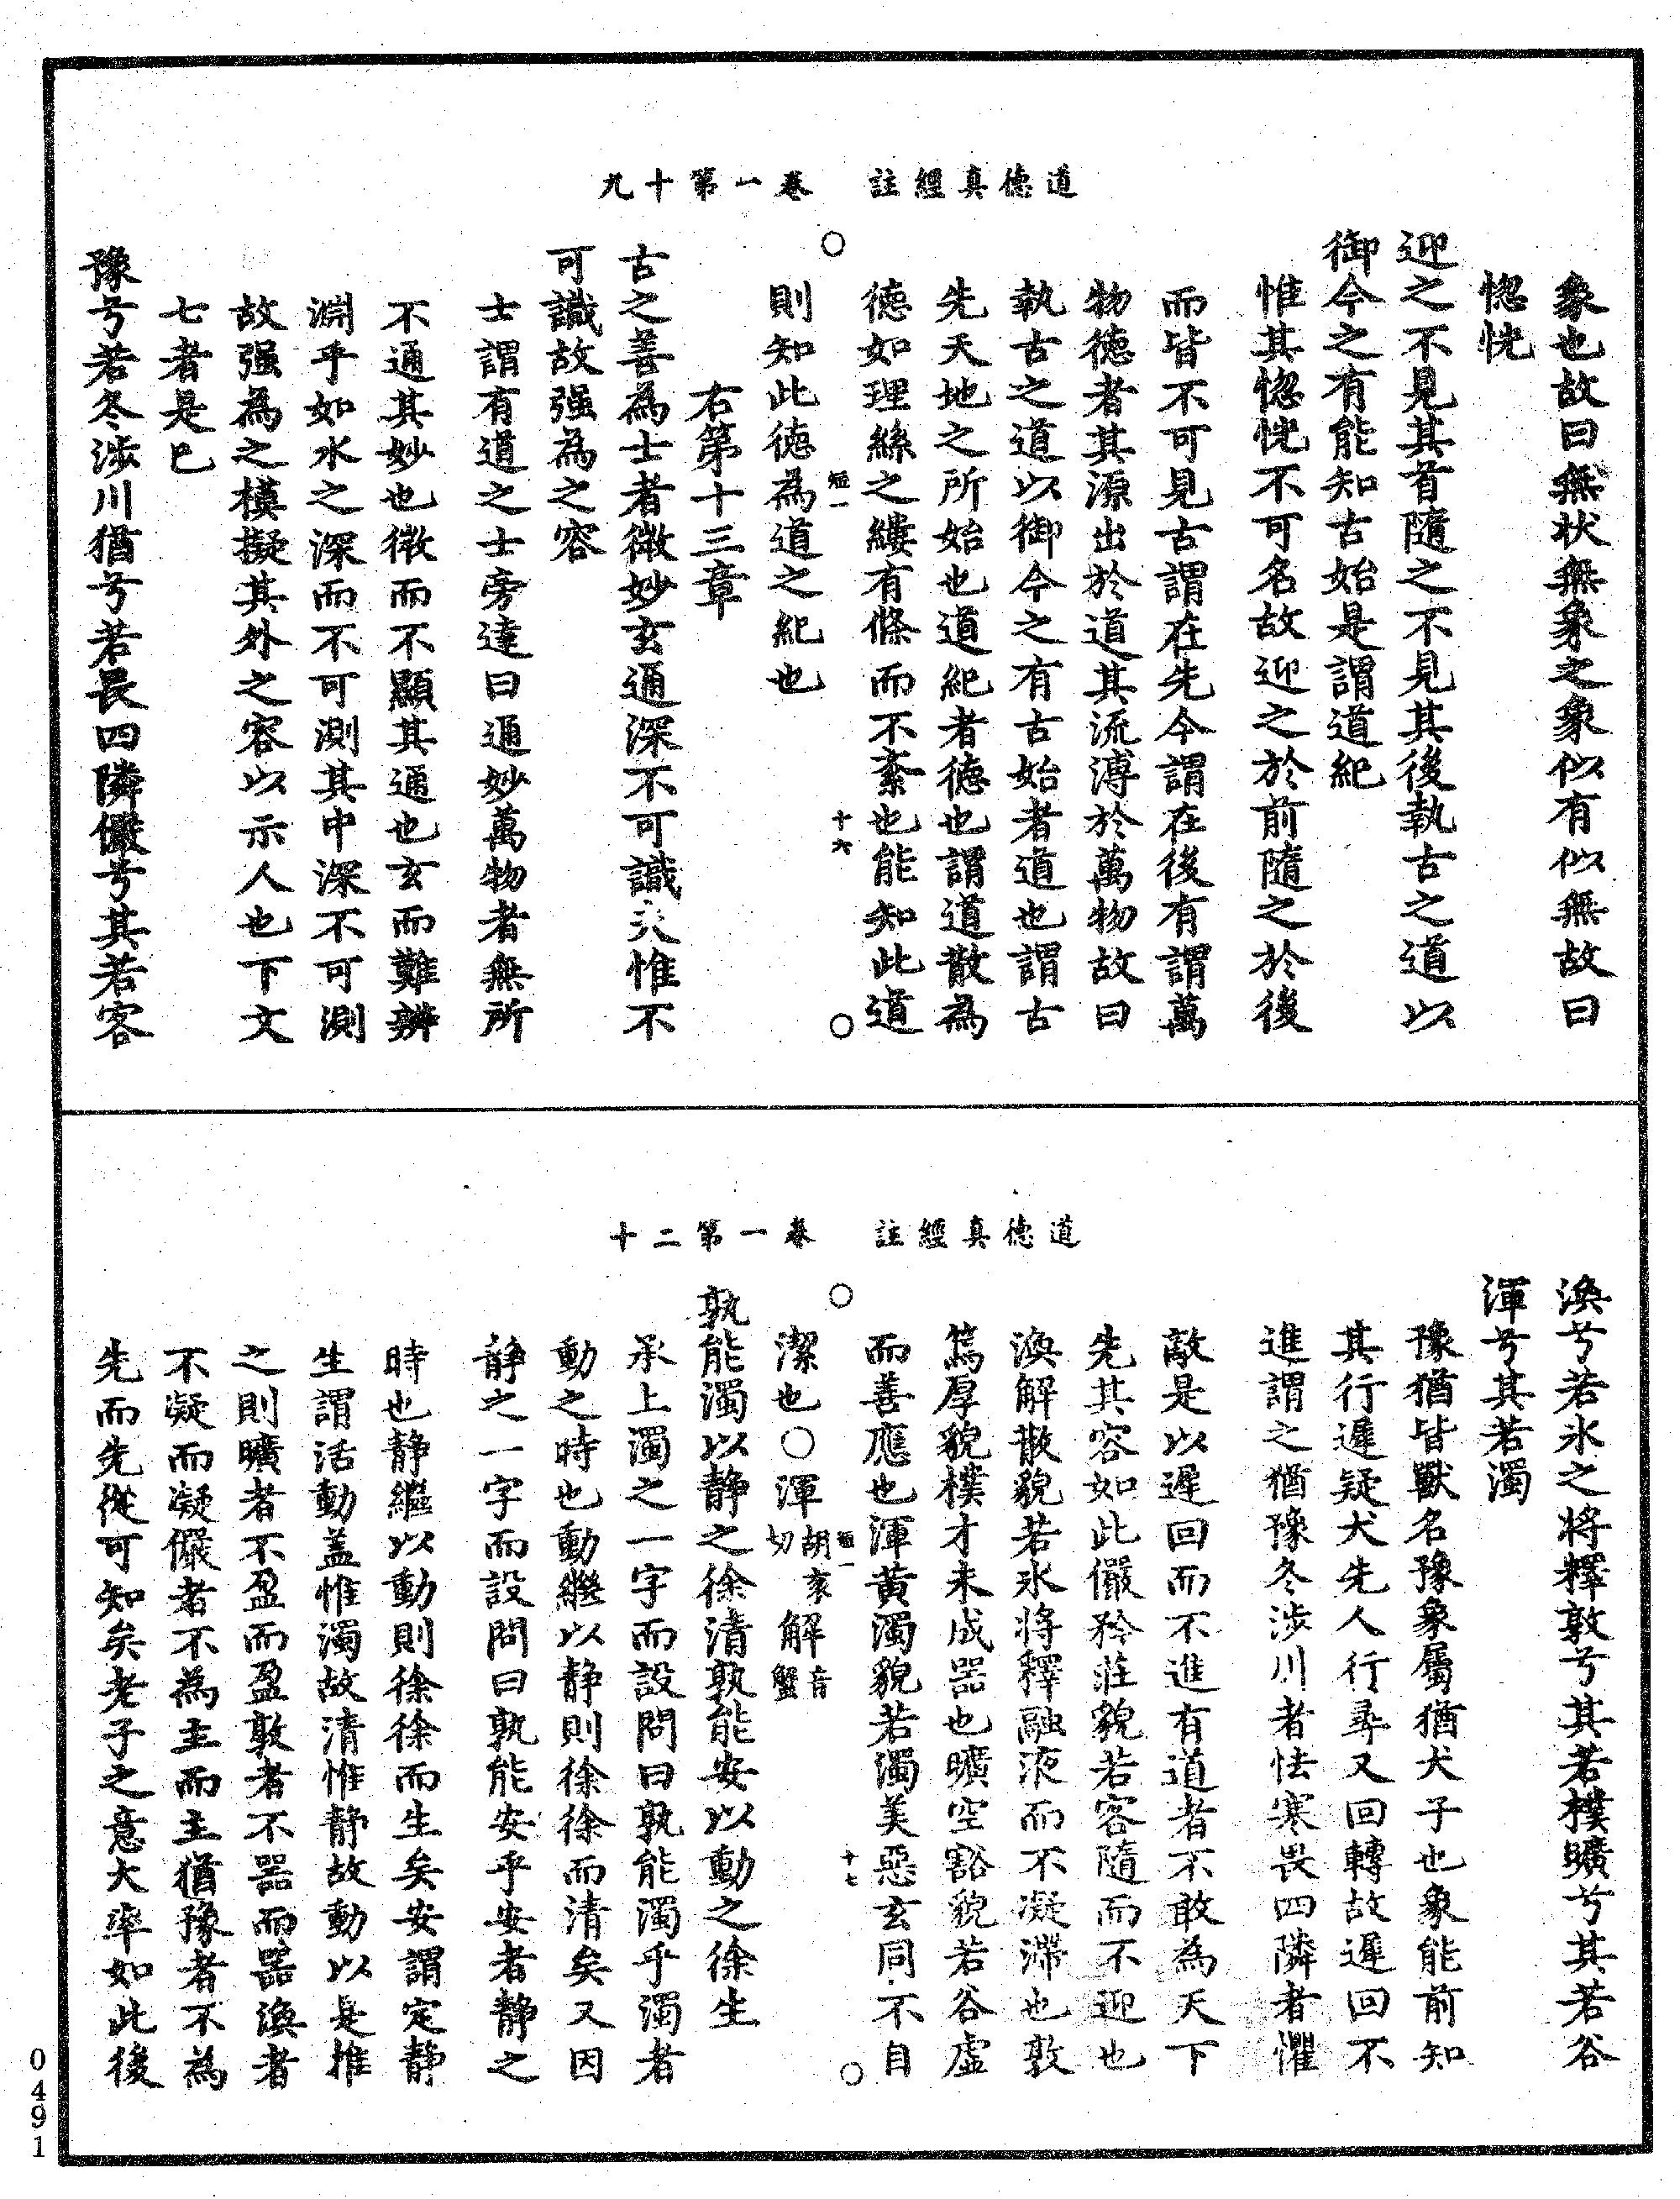 道德真經註　卷一第十九
象也故曰無狀無象之象似有似無故曰
惚恍
迎之不見其首隨之不見其後執古之道以
御今之有能知古始是謂道紀
惟其惚恍不可名故迎之於前隨之於後
而皆不可見古謂在先今謂在後有謂萬
物德者其源出於道其流溥於萬物故曰
執古之道以御今之有古始者道也謂古
先天地之所始也道紀者德也謂道散為
德如理絲之縷有條而不紊也能知此道
○　短一　十六　○
則知此德為道之紀也
右第十三章
古之善為士者微妙玄通深不可識夫惟不
可識故强為之容
士謂有道之士旁達曰通妙萬物者無所
不通其妙也微而不顯其通也玄而難辨
淵乎如水之深而不可測其中深不可測
故强為之模擬其外之容以示人也下文
七者是已
豫兮若冬涉川猶兮若畏四隣儼兮其若客
道德真經註　卷一第二十
渙兮若氷之將釋敦兮其若樸曠兮其若谷
渾兮其若濁
豫猶皆獸名豫象屬猶犬子也象能前知
其行遲疑犬先人行尋又回轉故遲回不
進謂之猶豫冬涉川者怯寒畏四隣者懼
敵是以遲回而不進有道者不敢為天下
先其容如此儼矜莊貌若客隨而不迎也
渙解散貌若氷將釋融液而不凝滯也敦
篤厚貌樸才未成器也曠空豁貌若谷虛
而善應也渾黃濁貌若濁美惡玄同不自
○　短一　十七　○
潔也○渾胡衮切解音蟹
孰能濁以静之徐清孰能安以動之徐生
承上濁之一字而設問曰孰能濁乎濁者
動之時也動繼以静則徐徐而清矣又因
静之一字而設問曰孰能安乎安者静之
時也静繼以動則徐徐而生矣安謂定静
生謂活動盖惟濁故清惟静故動以是推
之則曠者不盈而盈敦者不器而器渙者
不凝而凝儼者不為主而主猶豫者不為
先而先從可知矣老子之意大率如此後
0491